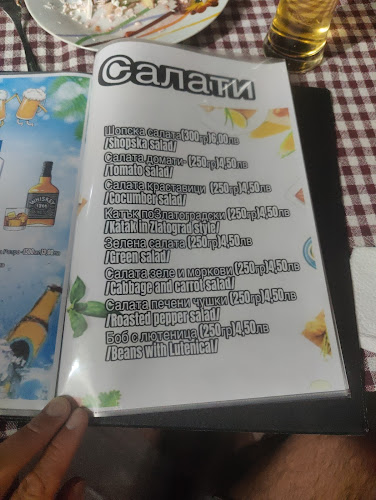 Салати
Шопска салата(300гр)6,00лв
/Shopska salad/
Салата домати- (250гр)4,50лв
/Tomato salad/
Салата краставици (250гр)4,50лв
/Cocumber salad/
Катък поЗлатоградски(250гр)4,50лв
/Katak in Zlatograd style/
Зелена салата(250гр)4,50лв
/Green salad/
Салата зеле и моркови (250гр)4,50лв
/Cabbage and carrot salad/
Салата печени чушки (250гр)4,50лв
/Roasted pepper salad/
Боб с лютеница (250гр)4,50лв
/Beans with Lutenica/
WHISKEY